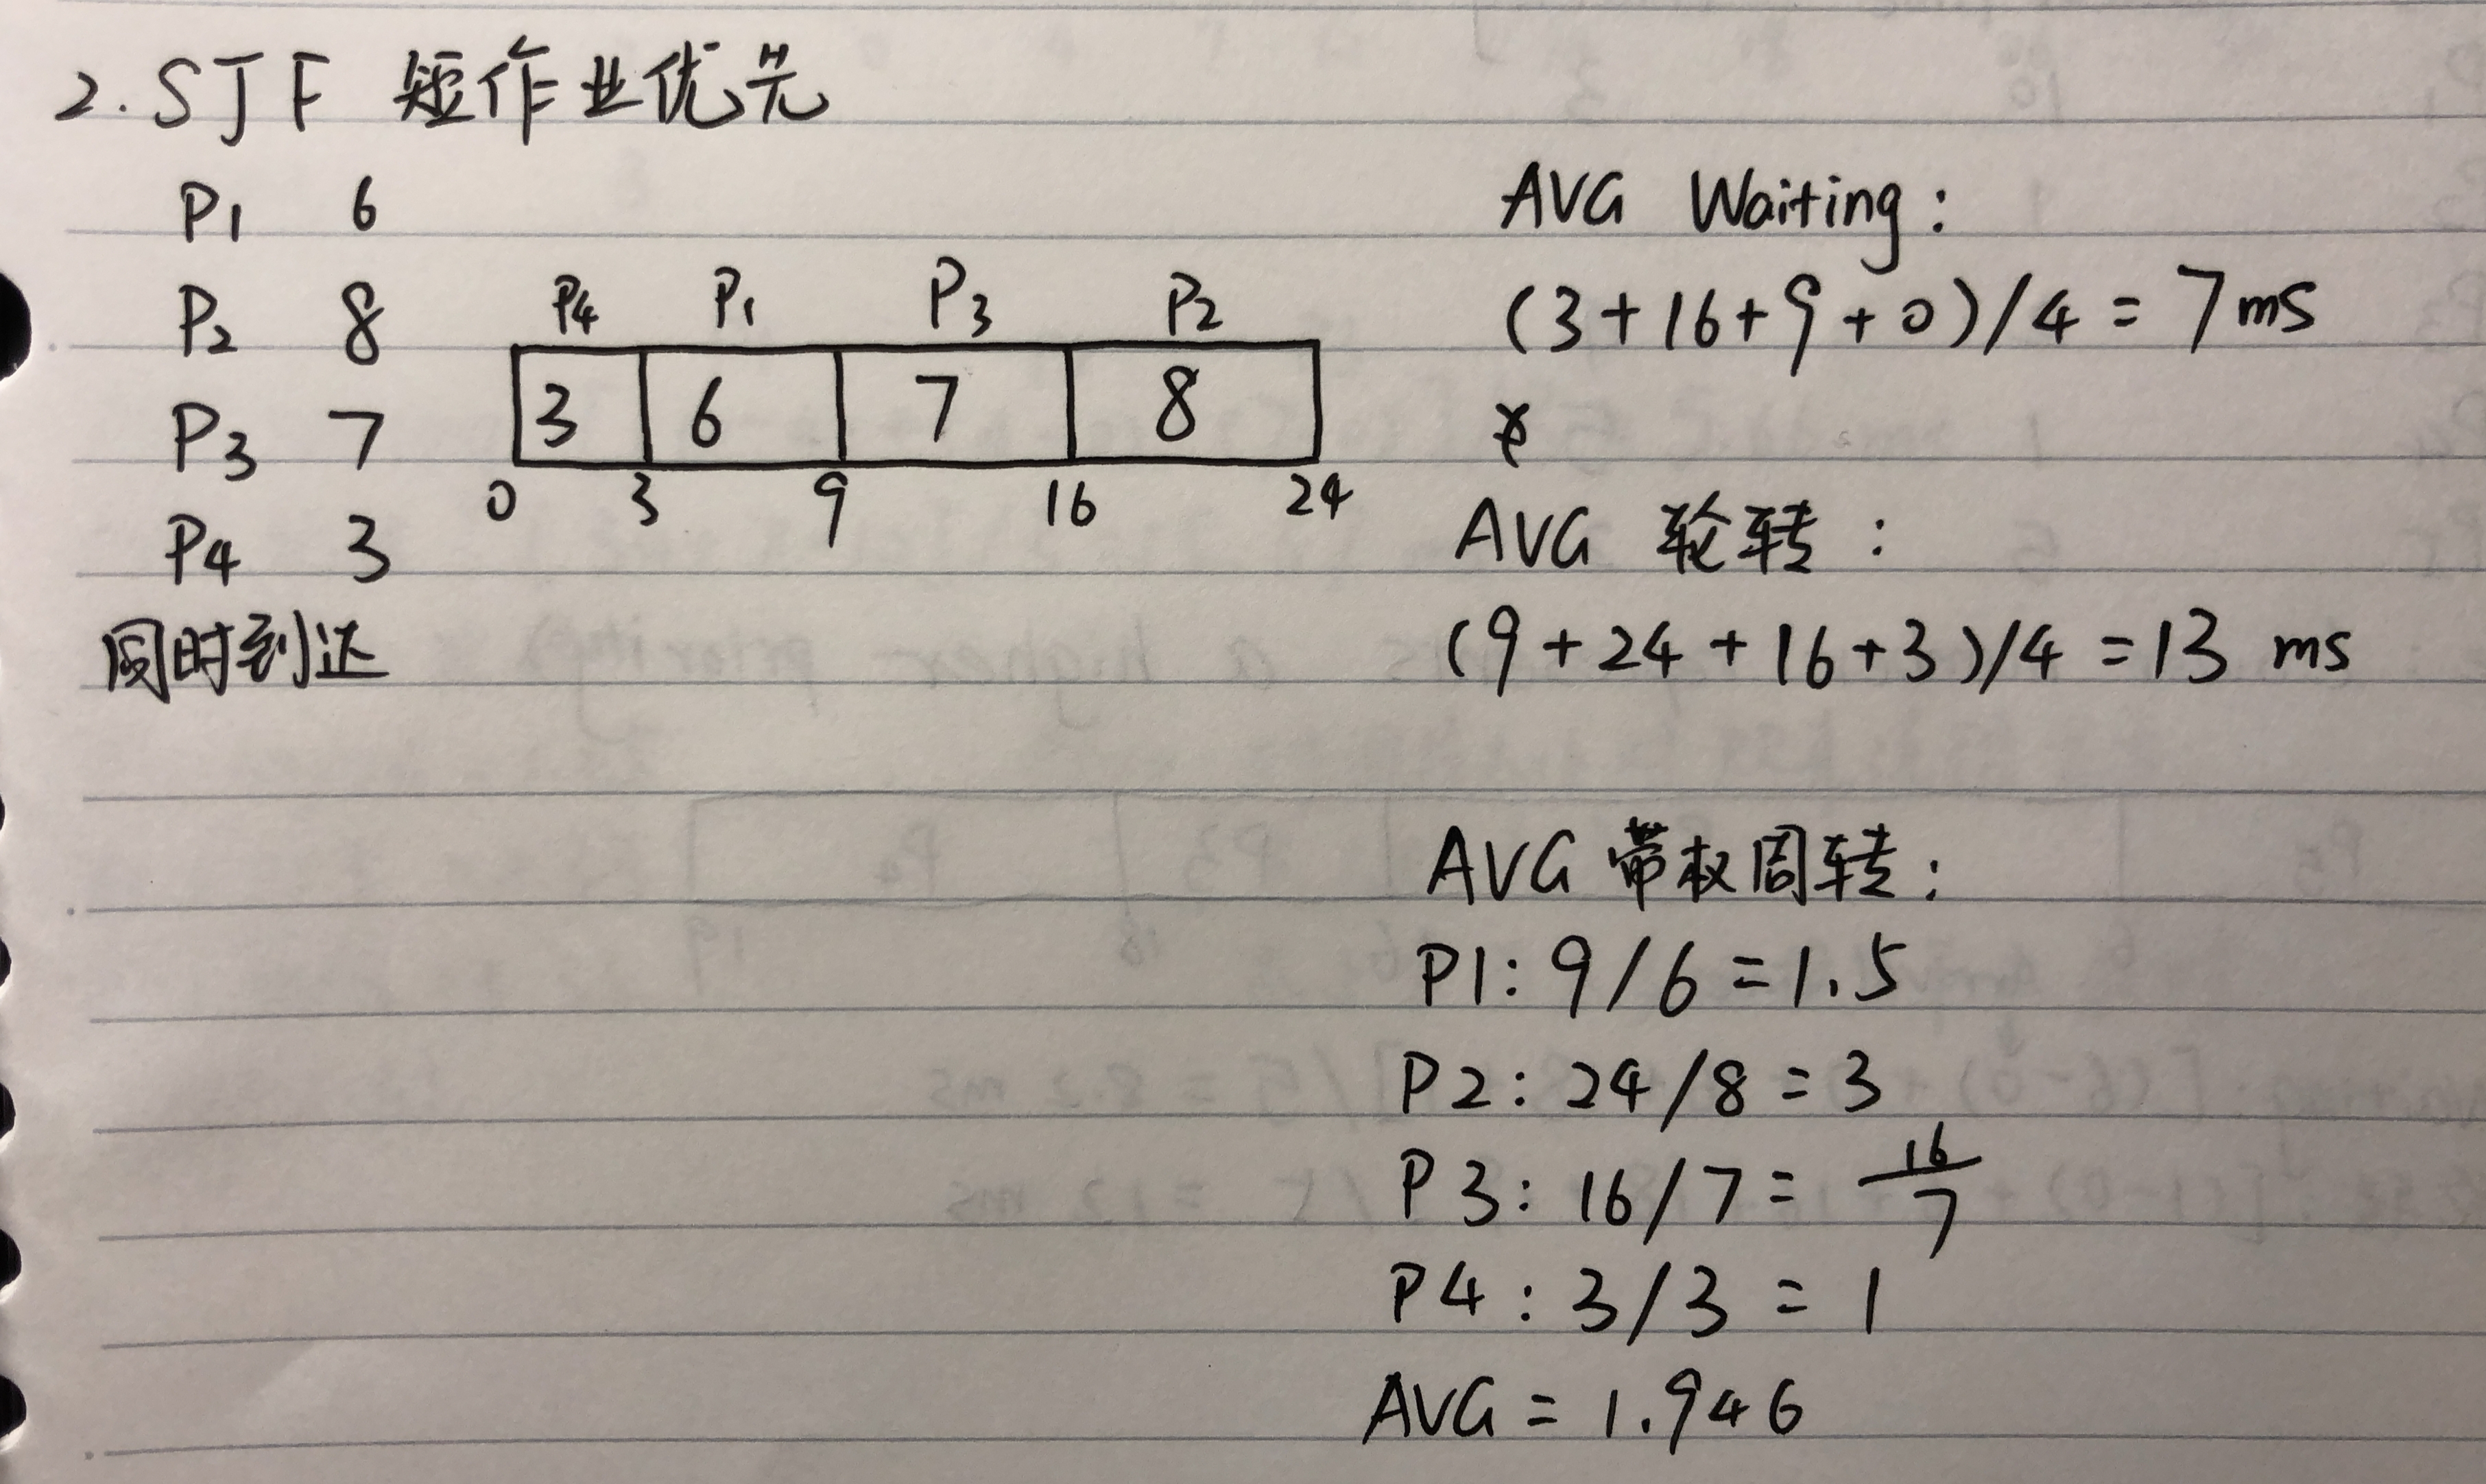 2. SJF 短作业优先
P1 6
P2 8
P3 7
P4 3
同时到达
P4 P1 P3 P2
3 6 7 8
0 3 9 16 24
AVG Waiting:
(3+16+9+0)/4 = 7ms
AVG 轮转:
(9+24+16+3)/4 = 13 ms
AVG 带权周转:
P1: 9/6 = 1.5
P2: 24/8 = 3
P3: 16/7 = 16/7
P4: 3/3 = 1
AVG = 1.946